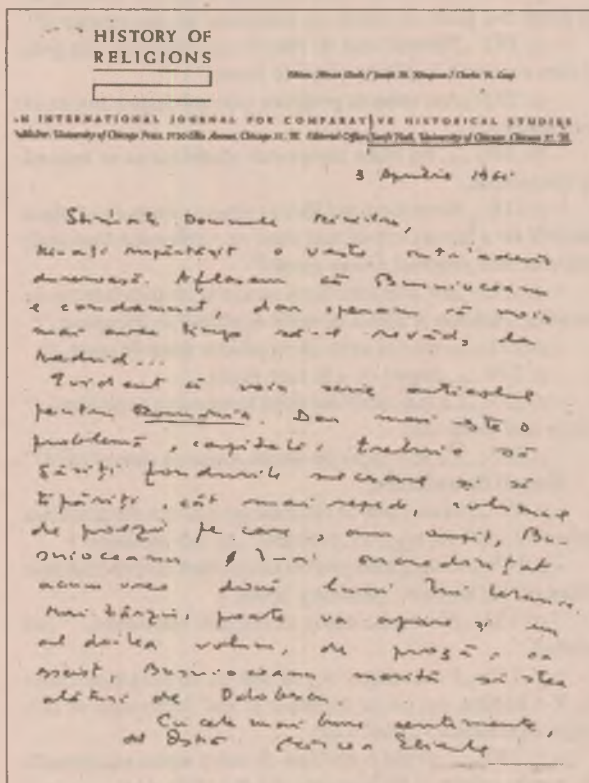 HISTORY OF
RELIGIONS
Editors: Mircea Eliade / Joseph M. Kitagawa / Charles H. Long
AN INTERNATIONAL JOURNAL FOR COMPARATIVE HISTORICAL STUDIES
Publisher: University of Chicago Press, 5750 Ellis Avenue, Chicago 37, Ill. Editorial Office: Swift Hall, University of Chicago, Chicago 37, Ill.
3 Aprilie
Stimate Domnule Ministru,
Mi-ați împărtășit o veste într'adevăr
dureroasă. Aflasem că Busuioceanu
e condamnat, dar speram că voiu
mai avea timp să-l revăd, la
Madrid...
Evident că voiu scrie articolul
pentru România. Dar mai este o
problemă, capitală: trebuie să
găsiți fondurile necesare și să
tipăriți, cât mai repede, volumul
de poezii pe care, am auzit, Bu-
suioceanu l-a încredințat
acum vreo două luni lui
Mai târziu, poate va apare și un
al doilea volum, de proză; ca
eseist, Busuioceanu merită să stea
alături de
Cu cele mai bune sentimente,
al Dstră Mircea Eliade